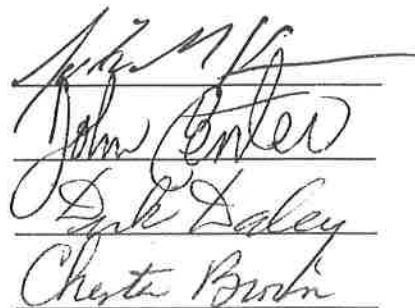 John Center
Dirk Daley
Chester Brown